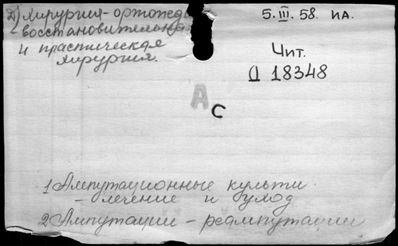 2) Хирургия - ортопед
восстановительна
и пластическая
хирургия.
5.III.58 на.
Чит.
Д 18348
А
С
1 Ампутационные культи
- лечение и уход
2 Ампутации - реампутации